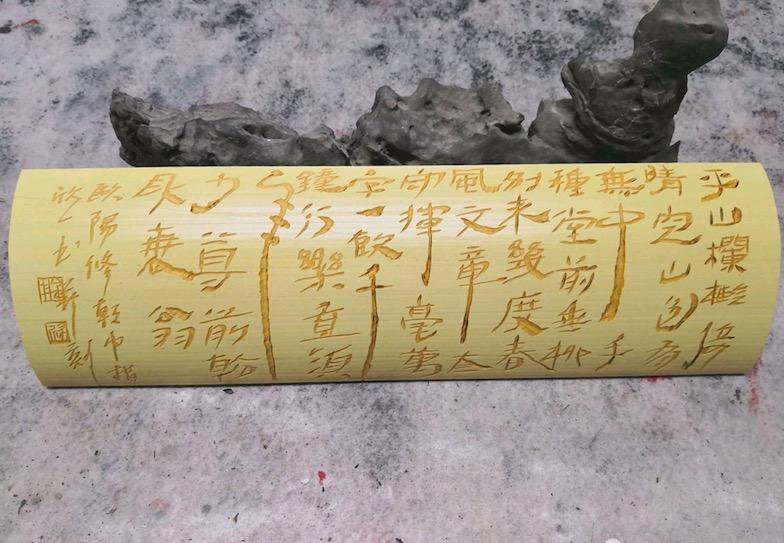 平山欄檻倚
晴空山色有
無中手
種堂前垂柳
別來幾度春
風文章太
守揮毫萬
字一飲千
鐘行樂直須
年
少尊前看
取衰翁
歐陽修朝中措
一书刻